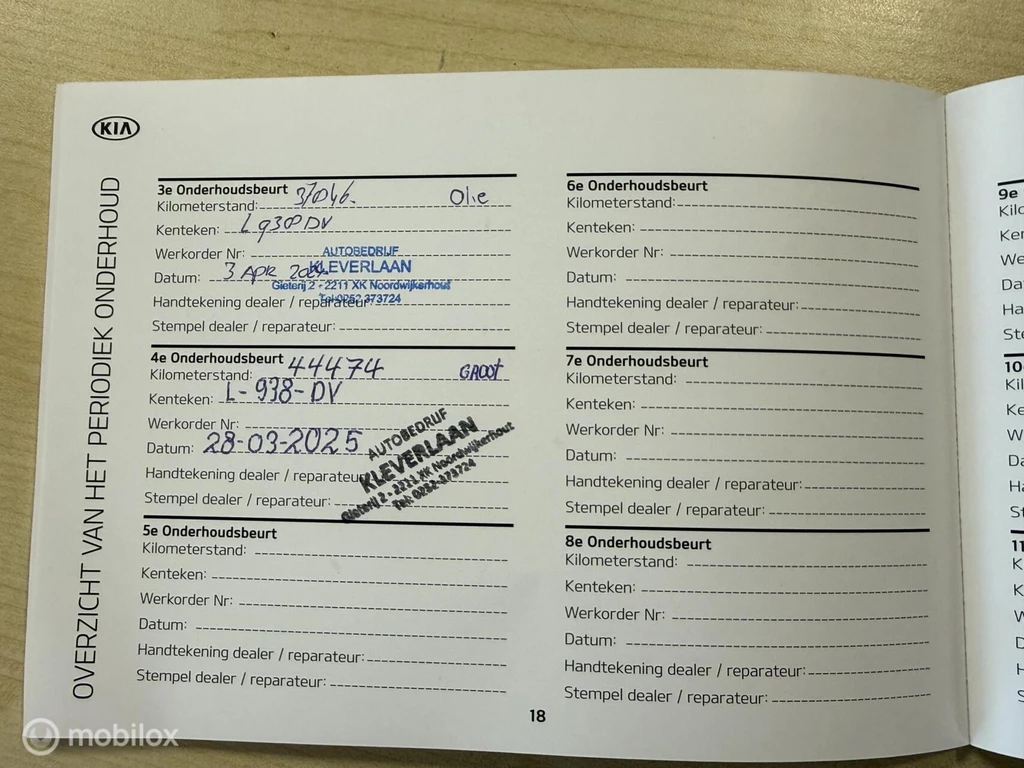 KIA
OVERZICHT VAN HET PERIODIEK ONDERHOUD
3e Onderhoudsbeurt
Kilometerstand: 37046. Olie
Kenteken: L 938 DV
Werkorder Nr:
Datum: 3 APR
Handtekening dealer / reparateur:
Stempel dealer / reparateur:
AUTOBEDRIJF
KLEVERLAAN
Gieterij 2 - 2211 XK Noordwijkerhout
Tel: 0252 373724
4e Onderhoudsbeurt
Kilometerstand: 44474 GROOT
Kenteken: L-938-DV
Werkorder Nr:
Datum: 28-03-2025
Handtekening dealer / reparateur
Stempel dealer / reparateur:
AUTOBEDRIJF
KLEVERLAAN
Gieterij 2 - 2211 XK Noordwijkerhout
Tel: 0252-373724
5e Onderhoudsbeurt
Kilometerstand:
Kenteken:
Werkorder Nr:
Datum:
Handtekening dealer / reparateur:
Stempel dealer / reparateur:
6e Onderhoudsbeurt
Kilometerstand:
Kenteken:
Werkorder Nr:
Datum:
Handtekening dealer / reparateur:
Stempel dealer / reparateur:
7e Onderhoudsbeurt
Kilometerstand:
Kenteken:
Werkorder Nr:
Datum:
Handtekening dealer / reparateur:
Stempel dealer / reparateur:
8e Onderhoudsbeurt
Kilometerstand:
Kenteken:
Werkorder Nr:
Datum:
Handtekening dealer / reparateur:
Stempel dealer / reparateur:
18
9e
10
11
mobilox